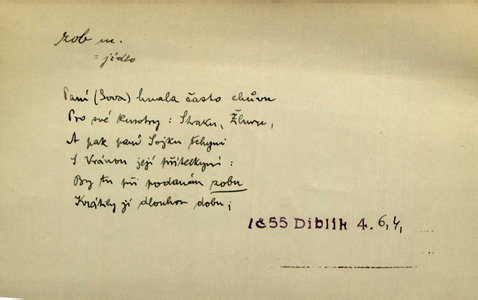 zob m.
= jídlo
Paní (Sova) hnala často chůvu
Pro své kmotry: Straku, Žluvu,
A pak paní Sojku tchyni
S Vránou její přítelkyní:
By tu při podaném zobu
Krátily jí dlouhou dobu;
1855 Diblík 4. 6, 4,